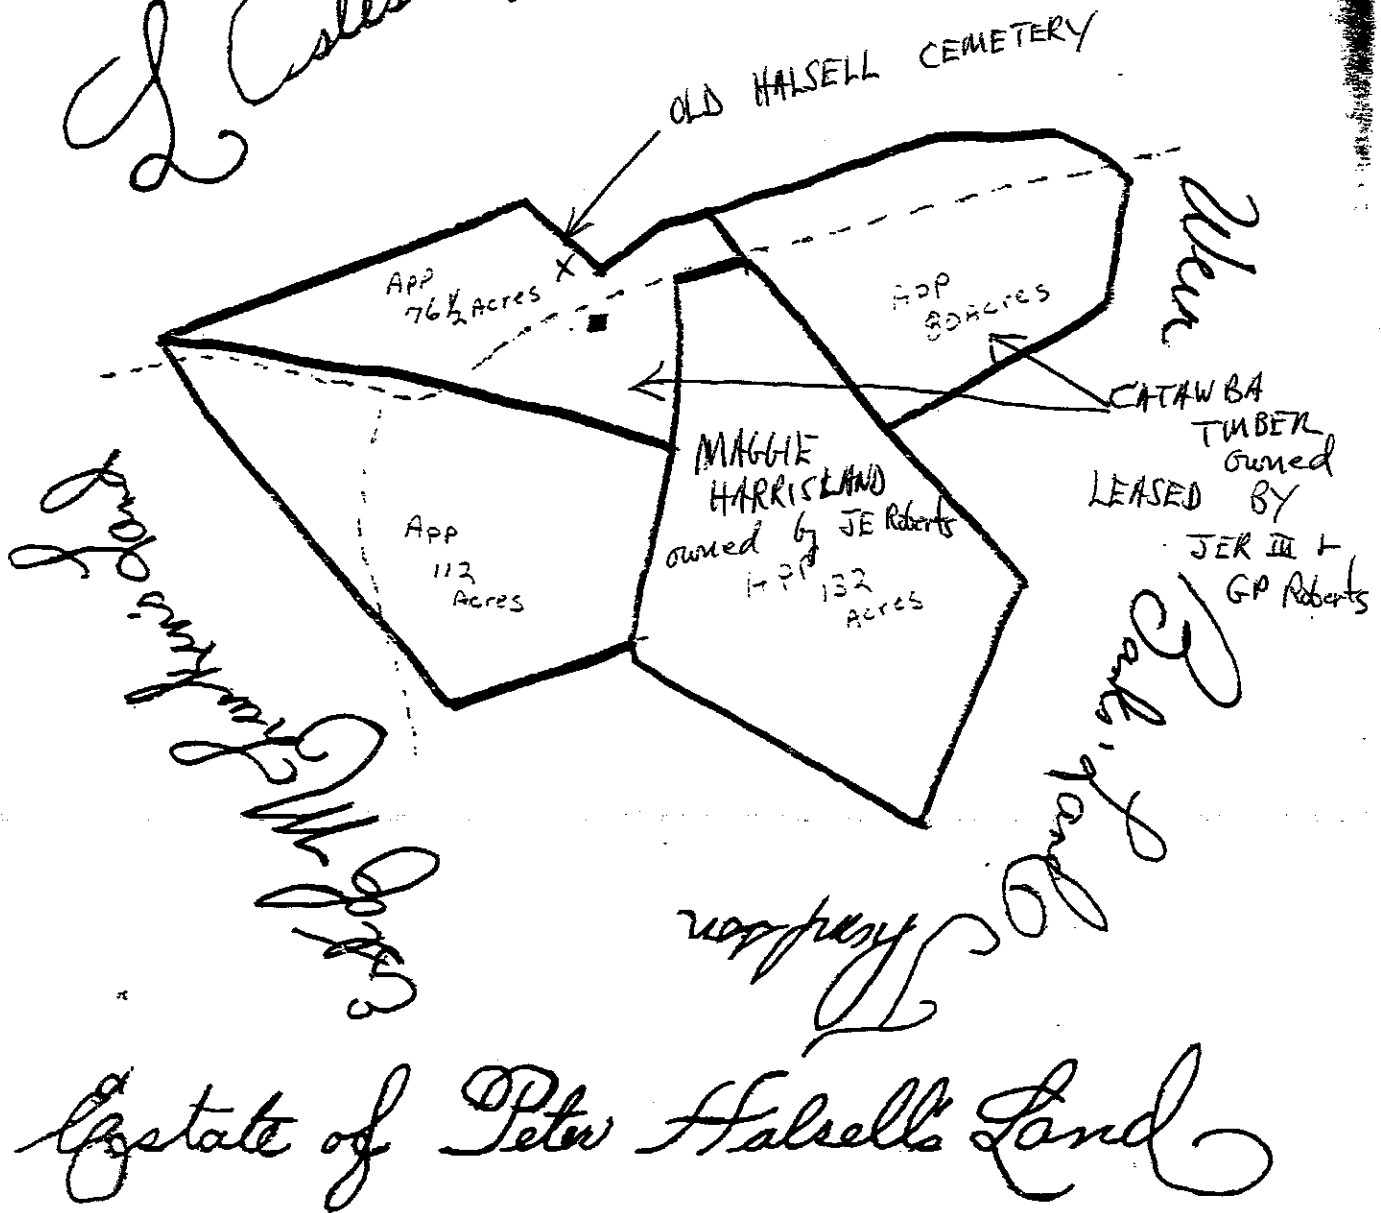 OLD HALSELL CEMETERY
App
76½ Acres
X
App
80 Acres
Weir
CATAWBA
TIMBER
owned
LEASED BY
JER III &
GP Roberts
MAGGIE
HARRIS LAND
owned by JE Roberts
App 132
Acres
App
112
Acres
Parks' Land
Thompson
Estate of Peter Halsell's Land